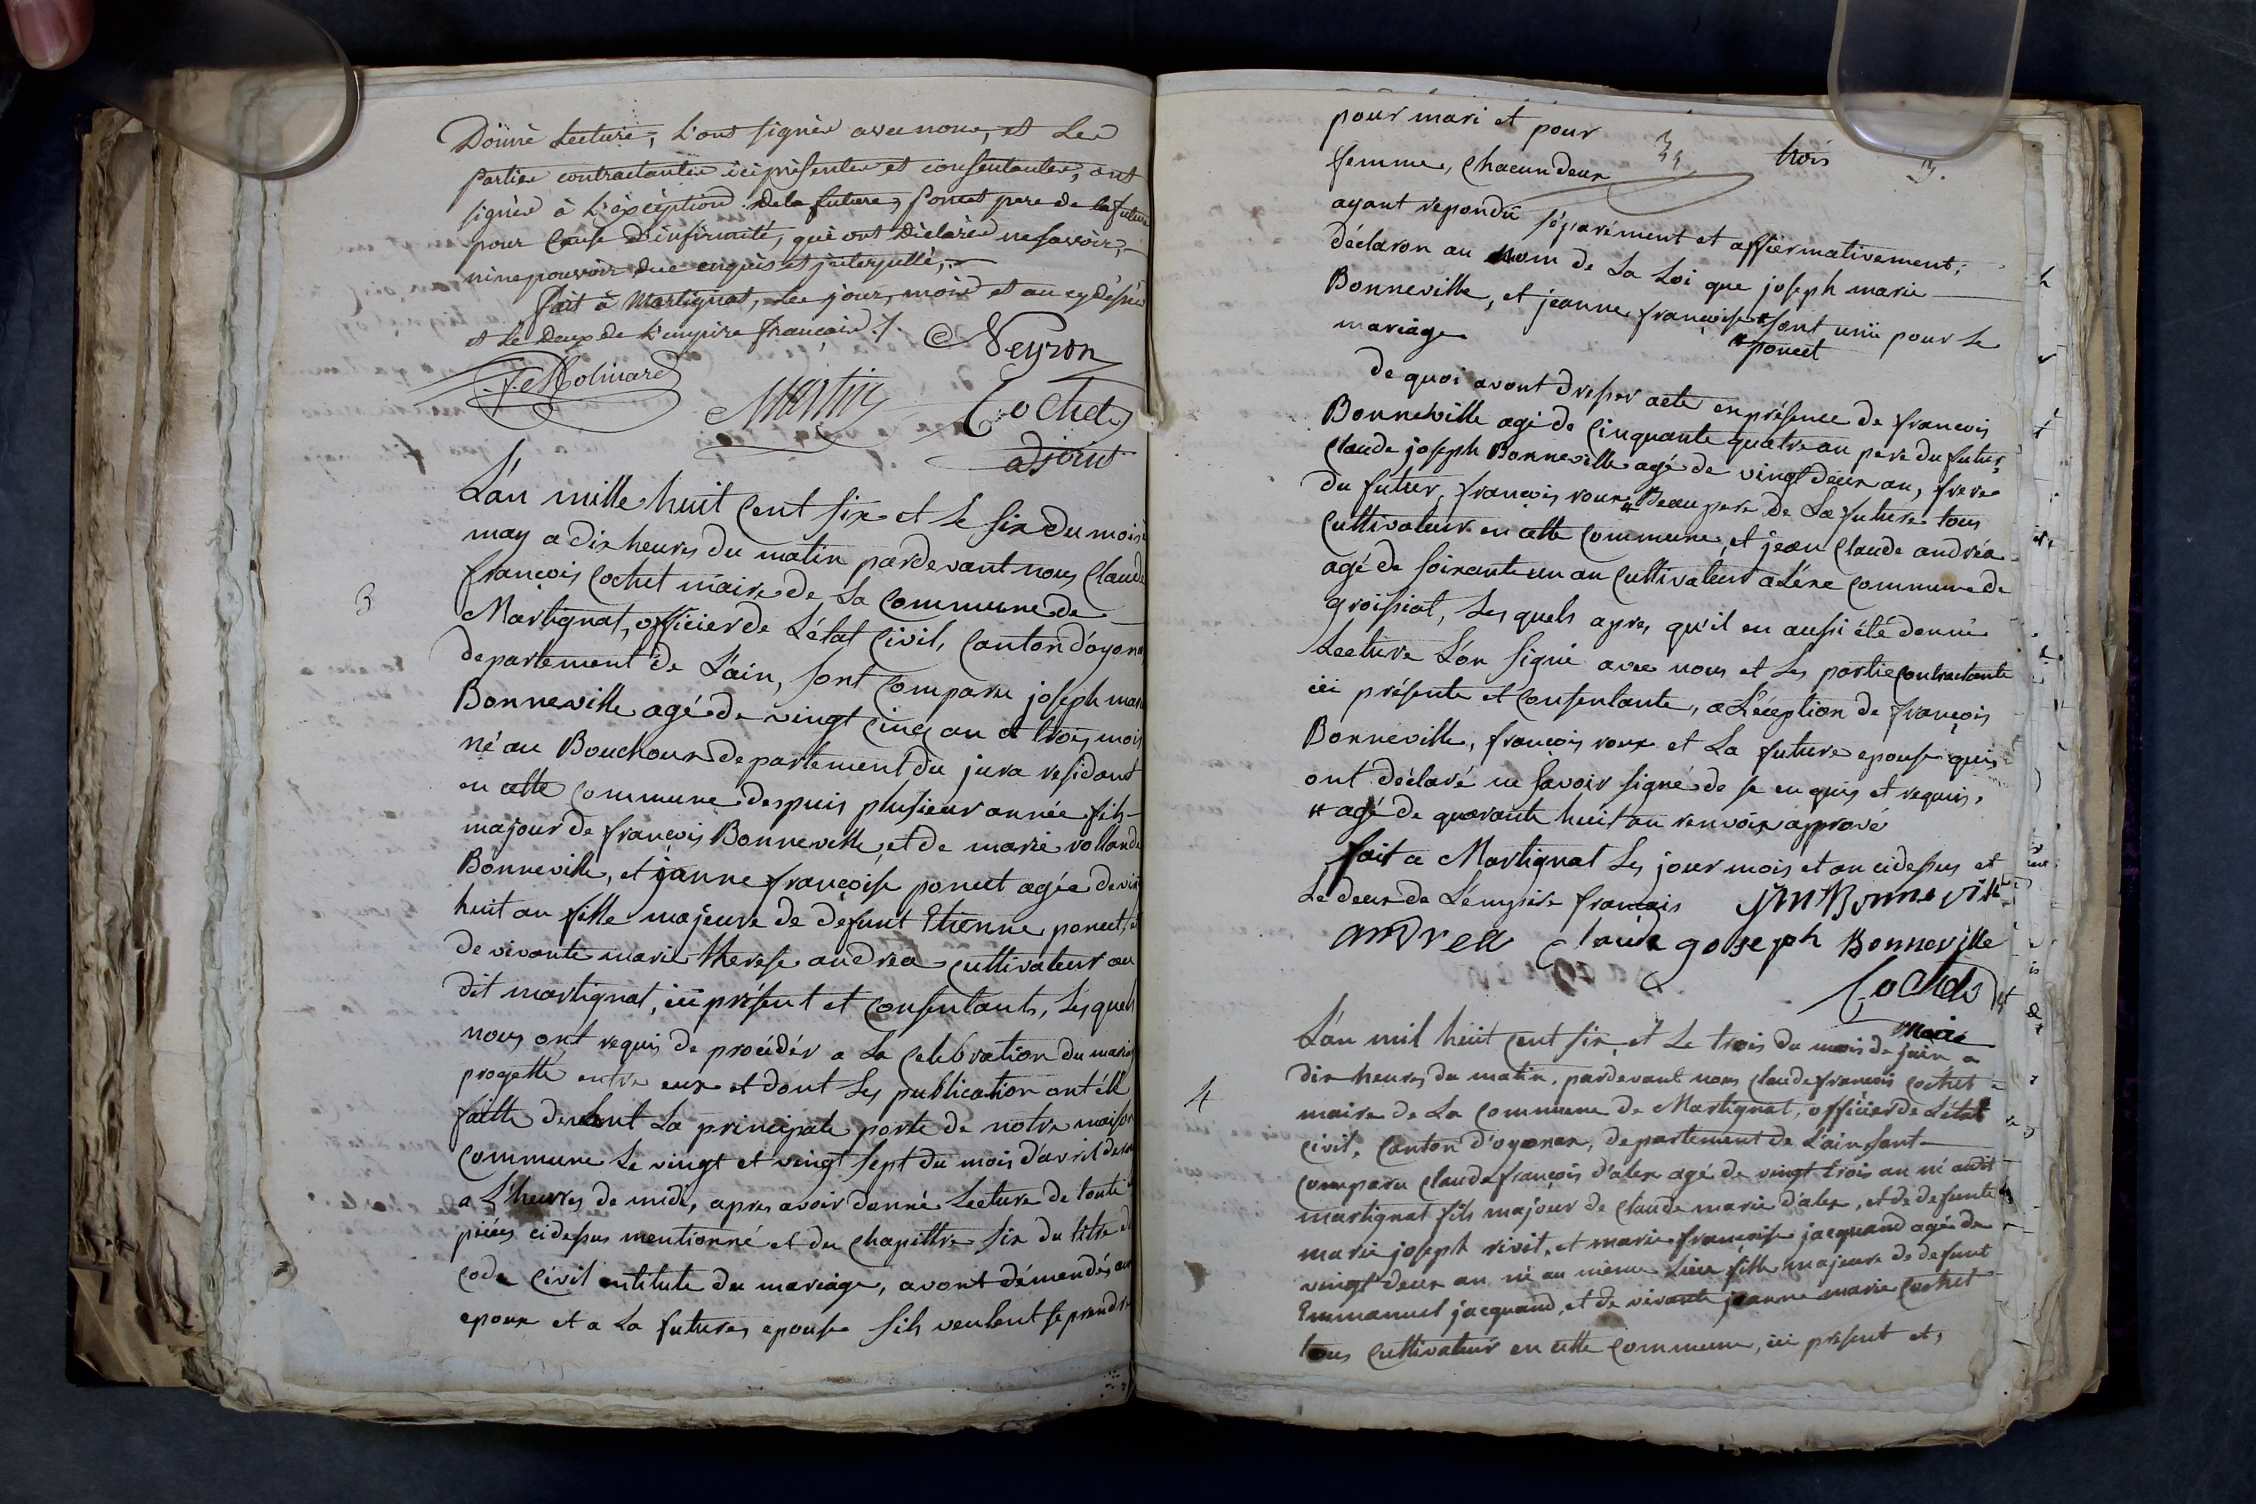 Donné Lecture, l'ont signées avec nous, et Les
parties contractantes ici présentes et consentantes, ont
signées à L'éxception de la future, Poncet pere de la future
pour Cause d'infirmité, qui ont déclarées ne savoir,
ni ne pouvoir due enquis et jnterpellé,
fait à Martignat, Les jour, mois et an cy dessus
et Le deux de L'empire français ./.
Neyron
Molinard
Martin
Cochet
adjoint
3
L'an mille huit Cent six et Le six du mois
may a dix heures du matin pardevant nous Claude
françois Cochet maire de La Commune de
Martignat, officier de L'état Civil, Canton d'oyonn
departement de L'ain, sont Comparu joseph mari
Bonneville agé de vingt Cinq an et trois mois
né au Bouchoux departement du jura residant
en cette Commune despuis plusieur année fils
majour de françois Bonneville, et de marie vollande
Bonneville, et janne françoise poncet agée de vin
huit an fille majeure de defunt Etienne poncet, e
de vivante marie therese andréa Cultivateur au
dit martignat, ici présent et Consentants, Lesquels
nous ont requis de procédér a La Celebration du mariag
progette entre eux et dont Les publication ont été
faitte devant La principale porte de notre maison
Commune Le vingt et vingt sept du mois d'avril dern
a L'heures de midi, apres avoir donné Lecture de toute
piéces cidessus mentionné et du Chapittre six du titre d
Code Civil entitule du mariage, avont démendés au
epoux et a La futures epouse sils veulent se prendre
pour mari et pour
trois
3.
femme, Chacun deux
ayant repondu séparément et affiermativement,
déclaron au nom de La Loi que joseph marie
Bonneville, et jeanne françoise * sont unie pour Le
mariage
* poncet
de quoi avont dresser acte enprésence de francois
Bonneville agé de Cinquante quatre an pere du futur,
Claude joseph Bonneville agé de vingt deux an, frere
du futur, françois roux * Beau pere de La future tous
Cultivateur en cette Commune, et jean Claude andréa
agé de soixante un an Cultivateur a Léxe Commune de
groissiat, Les quels apres, qu'il en aussi été donné
Lecture L'on signé avec nous et Les partie Contractante
ici présente et Consentante, a Léception de françois
Bonneville, françois roux et La future epouse qui
ont déclaré ne savoir signé de se enquis et requis.
* agé de quarante huit an renvoir apprové
fait a Martignat Les jour mois et an cidessus et
Le deux de L'émpire francais
JM Bonneville
andrea
Claude goseph Bonneville
Cochet
maire
4
L'an mil hüit Cent six, et Le trois du mois de juin a
dix heures du matin. pardevant nous Claude françois Cochet
maire de La Commune de Martignat, officier de L'état
Civil, Canton d'oyonax, departement de L'ain sont
Comparu Claude françois d'alex agé de vingt trois an né audit
martignat fils majour de Claude marie d'alex, et de defunte
marie joseph rivit, et marie françoise jacquand agée de
vingt deux an né au même Lieu fille majeure de defunt
Emmanuel jacquand, et de vivante jeanne marie Cochet
tous Cultivateur en cette Commune, ici présent et,